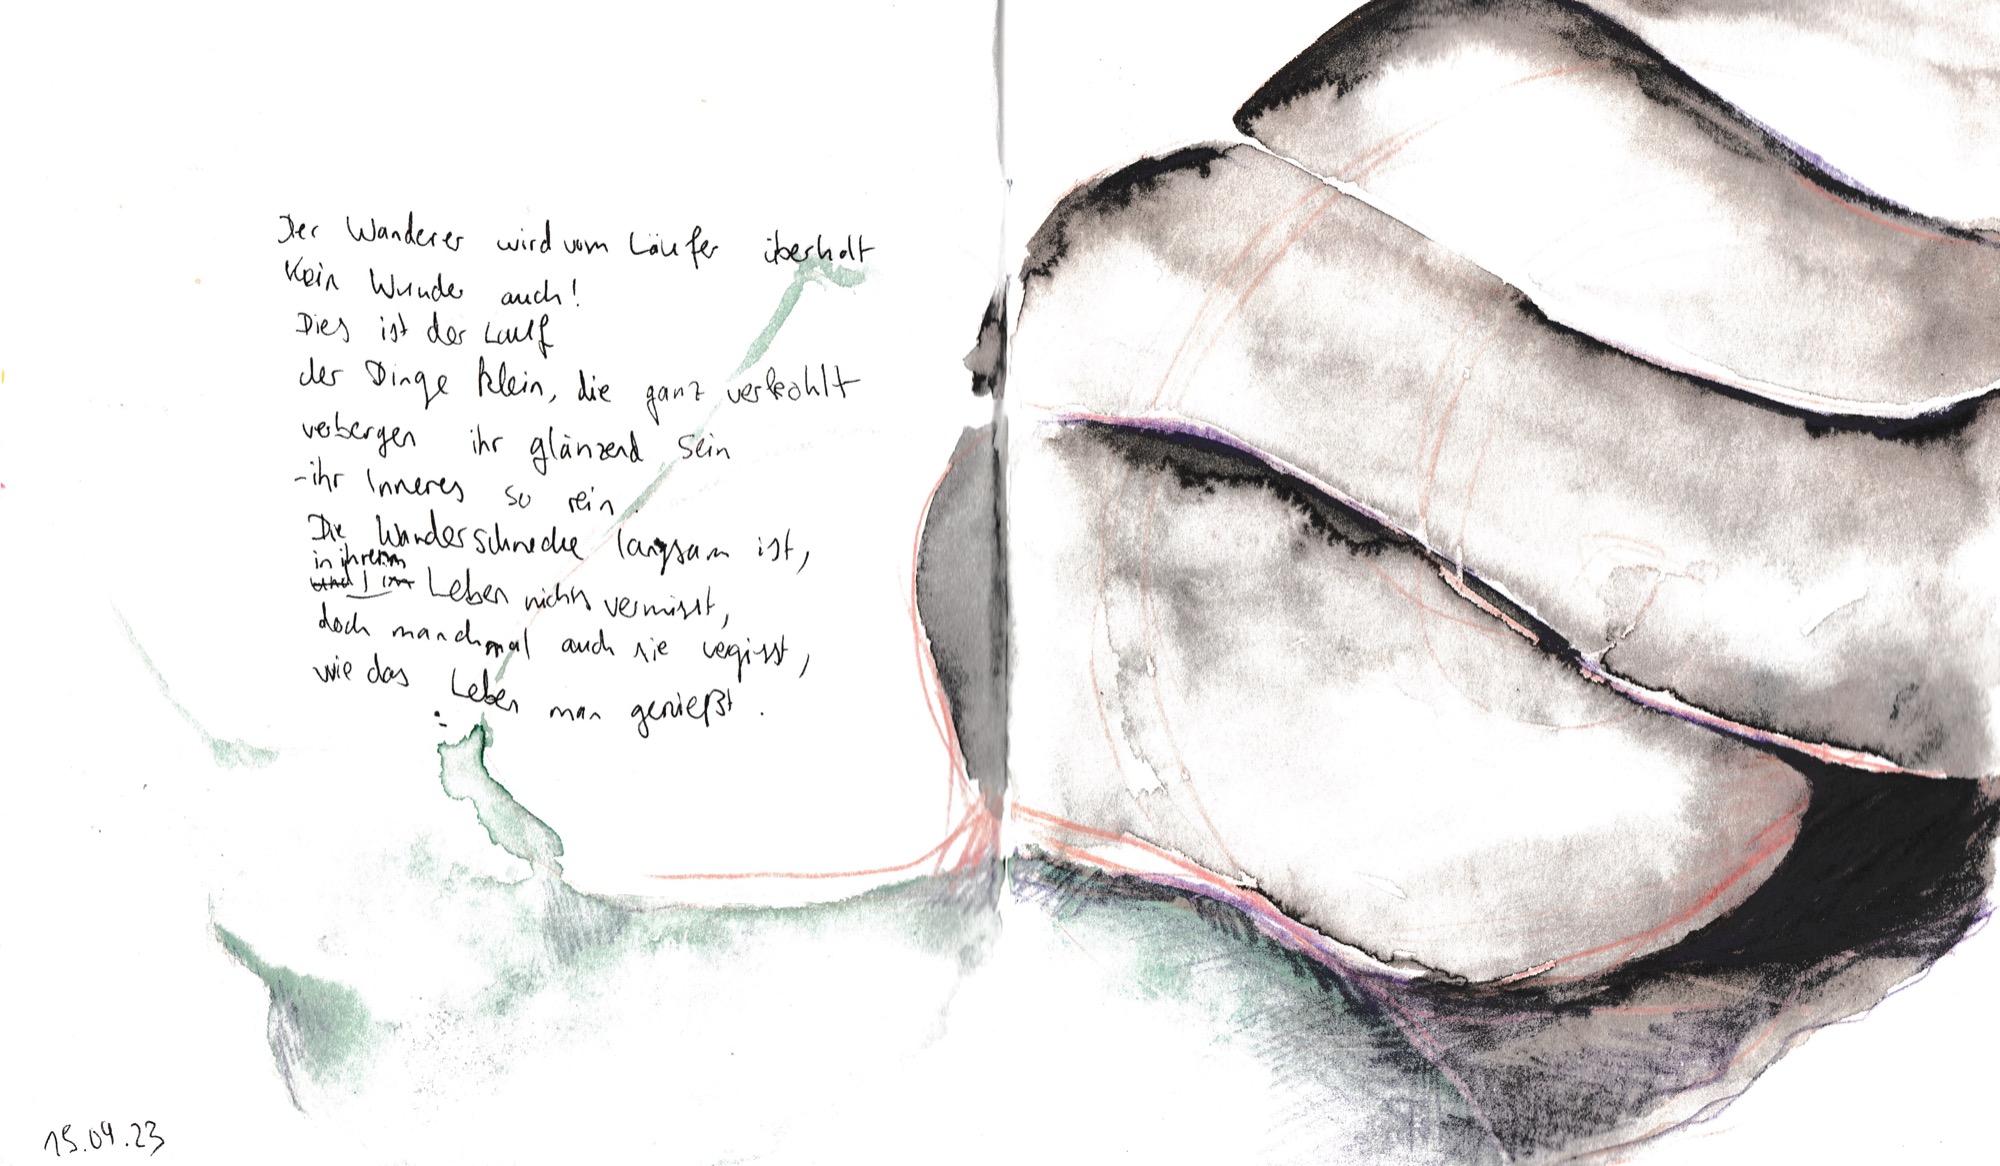 Der Wanderer wird vom Läufer überholt
Kein Wunder auch!
Dies ist der Lauf
der Dinge klein, die ganz verkohlt
verbergen ihr glänzend Sein
-ihr Inneres so rein.
Die Wanderschnecke langsam ist,
in ihrem
Leben nichts vermisst,
doch manchmal auch sie vegisst,
wie das Leben man genießt.
15.04.23